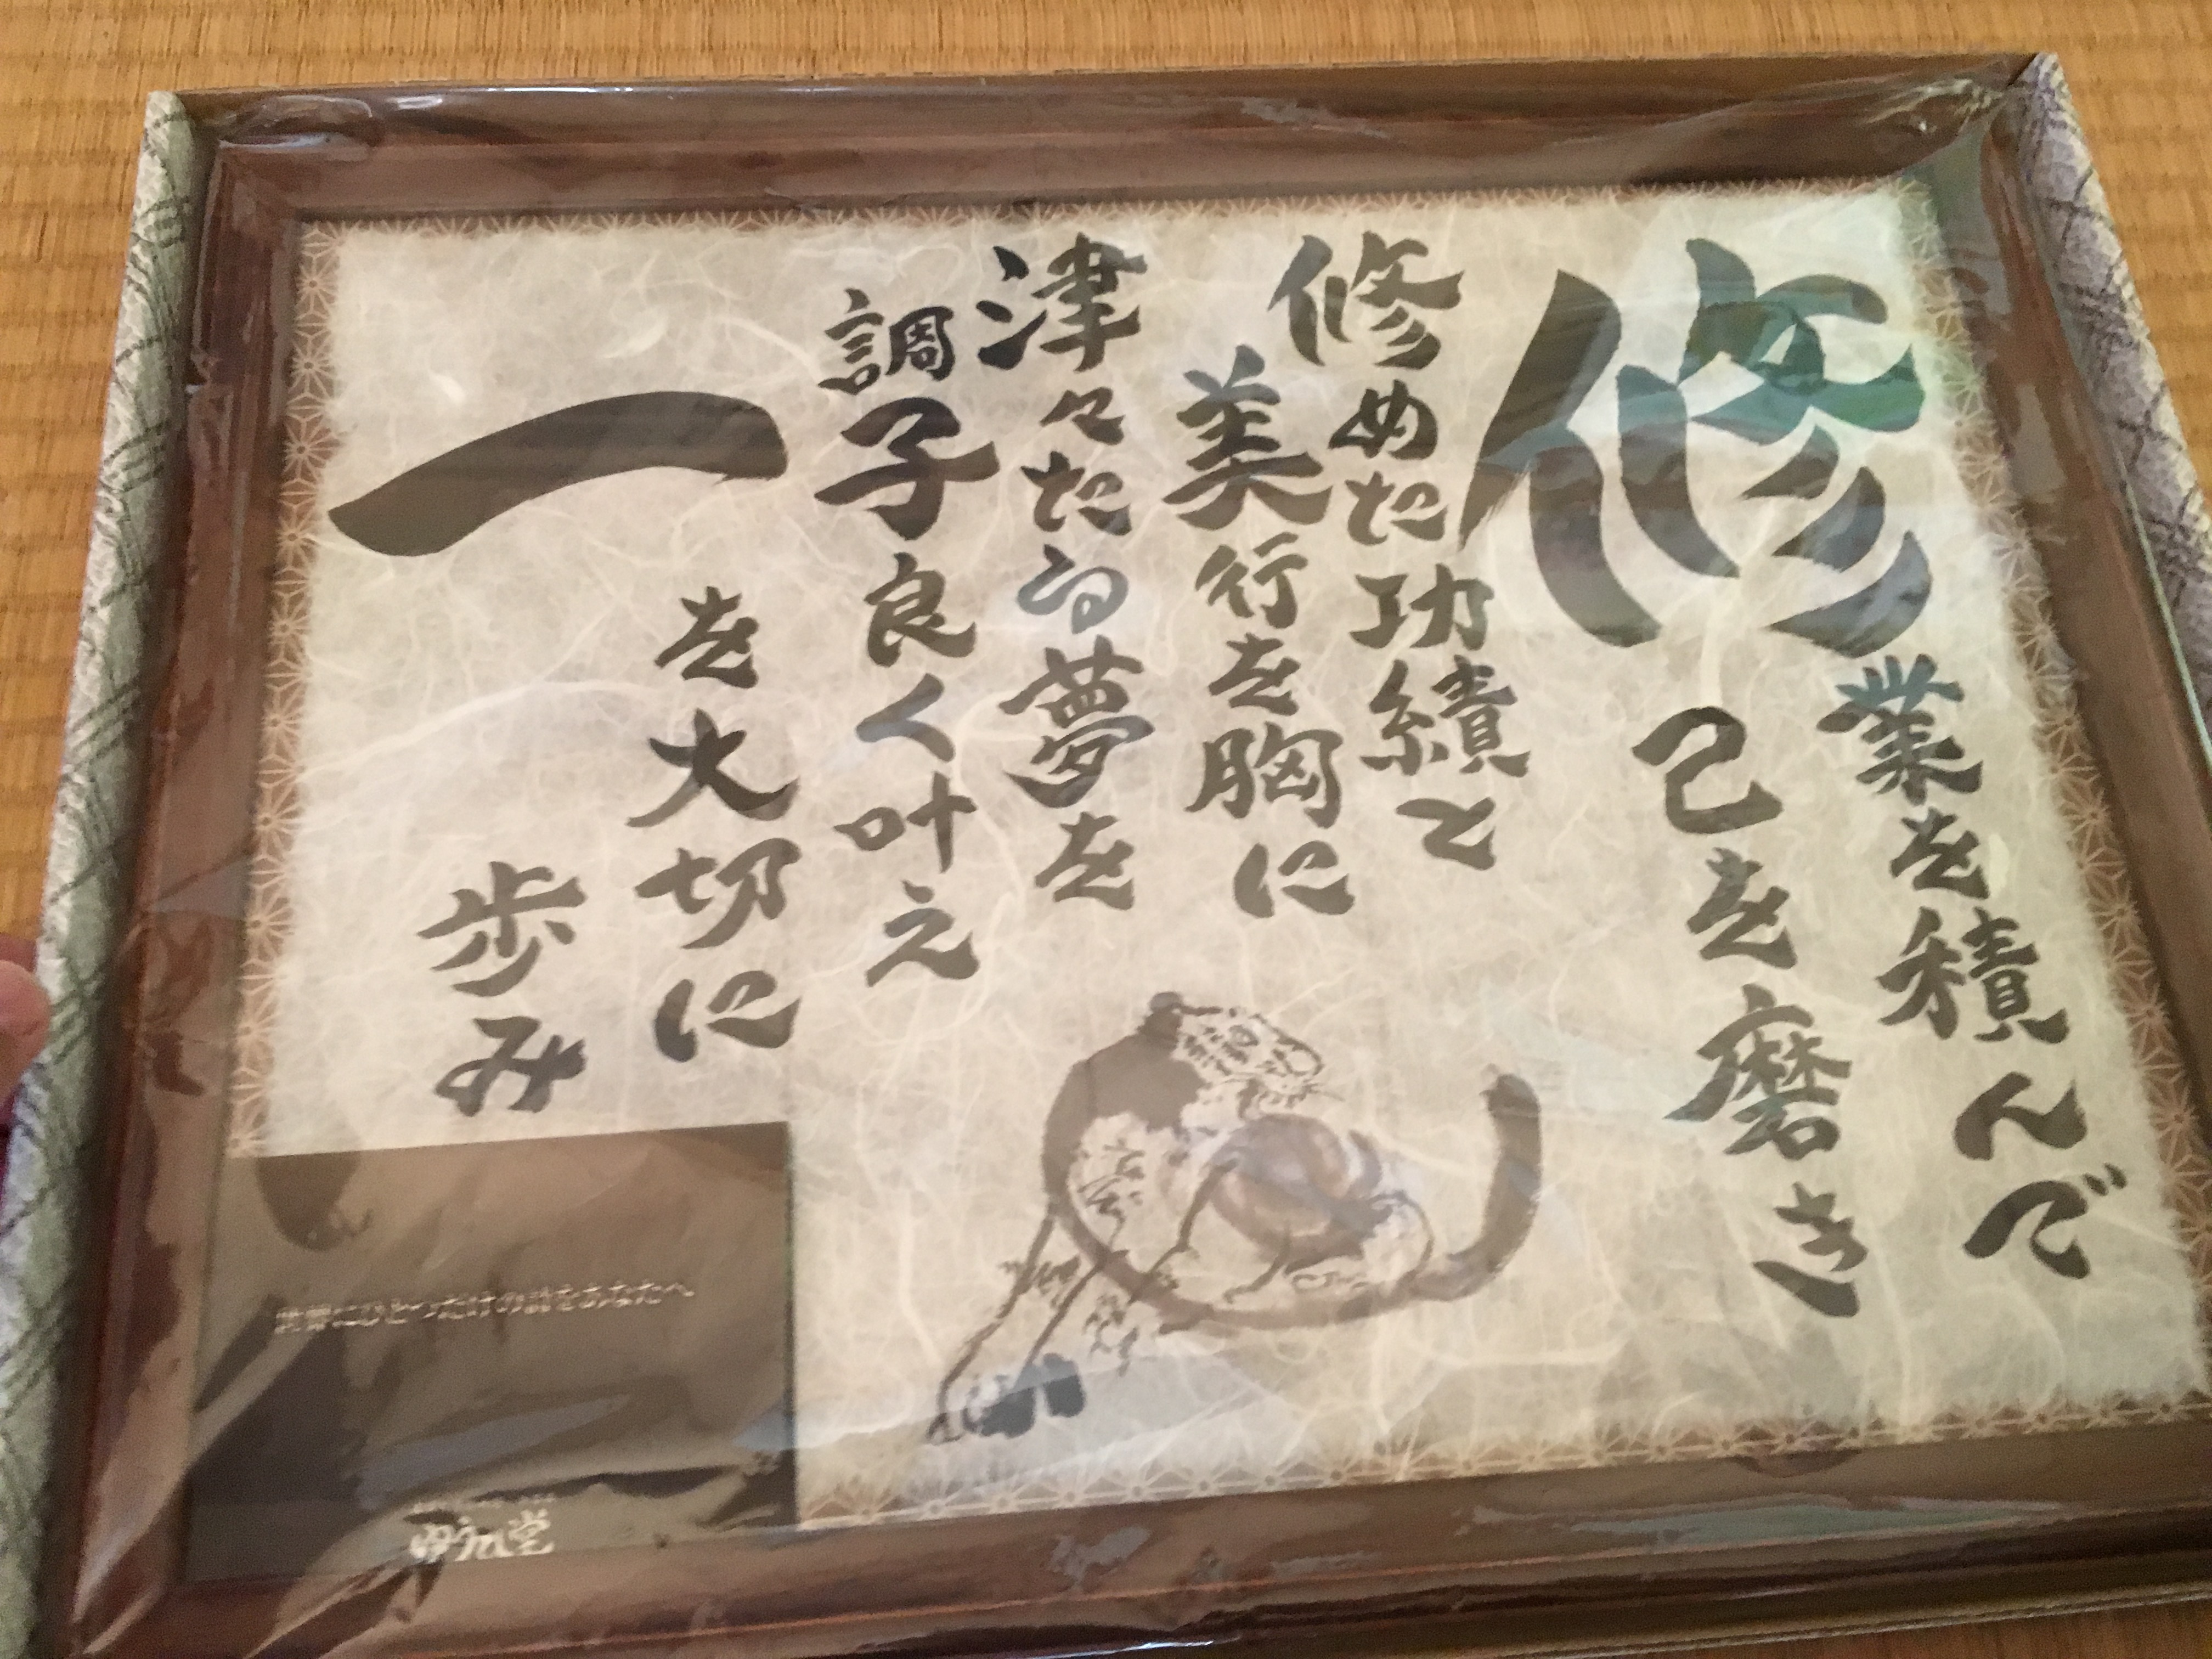 修業を積んで
己を磨き
修めた功績と
美行を胸に
津々たる夢を
調子良く叶え
一を大切に
歩み
世界にひとつだけの詩をあなたへ
ゆうひ堂